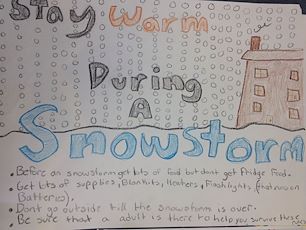 Stay Warm
During
A
Snowstorm
• Before an snowstorm get lots of food but dont get fridge food.
• Get lots of supplies, Blankits, Heaters, Flashlights, (that run on
Batteries).
• Dont go outside till the snowstorm is over.
• Be sure that a adult is there to help you survive these